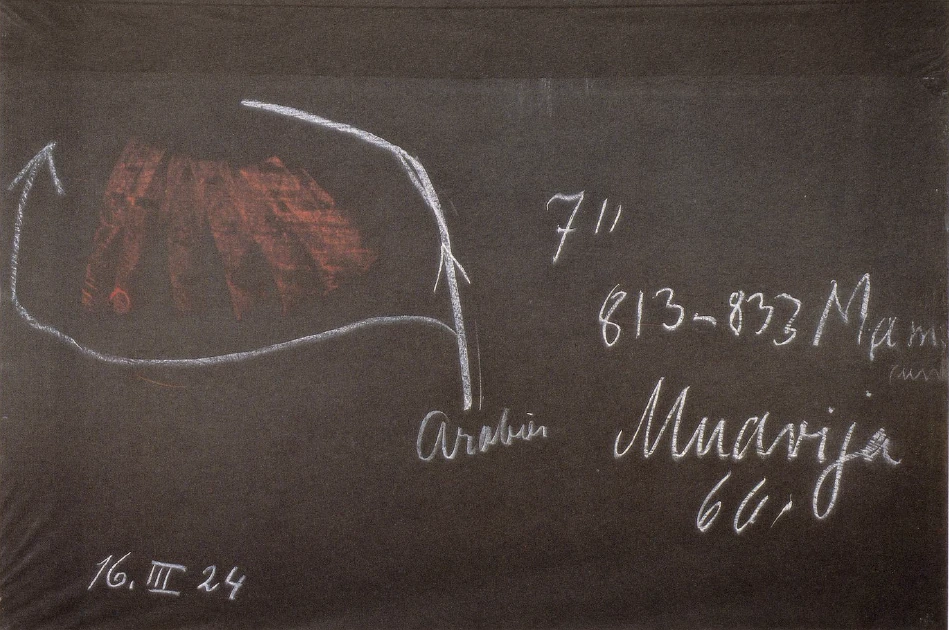 7"
813-833 Mam
Muavija
Arabien
16. III 24